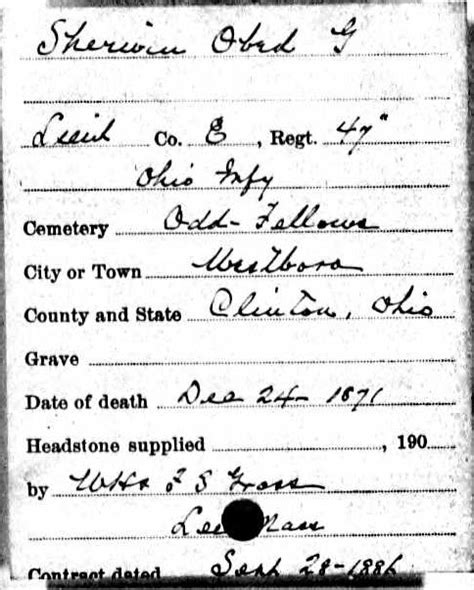 Sherwin Obed G
Lieut Co. E, Regt. 47"
Ohio Infy
Cemetery Odd-Fellows
City or Town Westboro
County and State Clinton, Ohio
Grave
Date of death Dec 24- 1871
Headstone supplied , 190
by & S Gross
Lee Mass
Contract dated Sept 28-1886